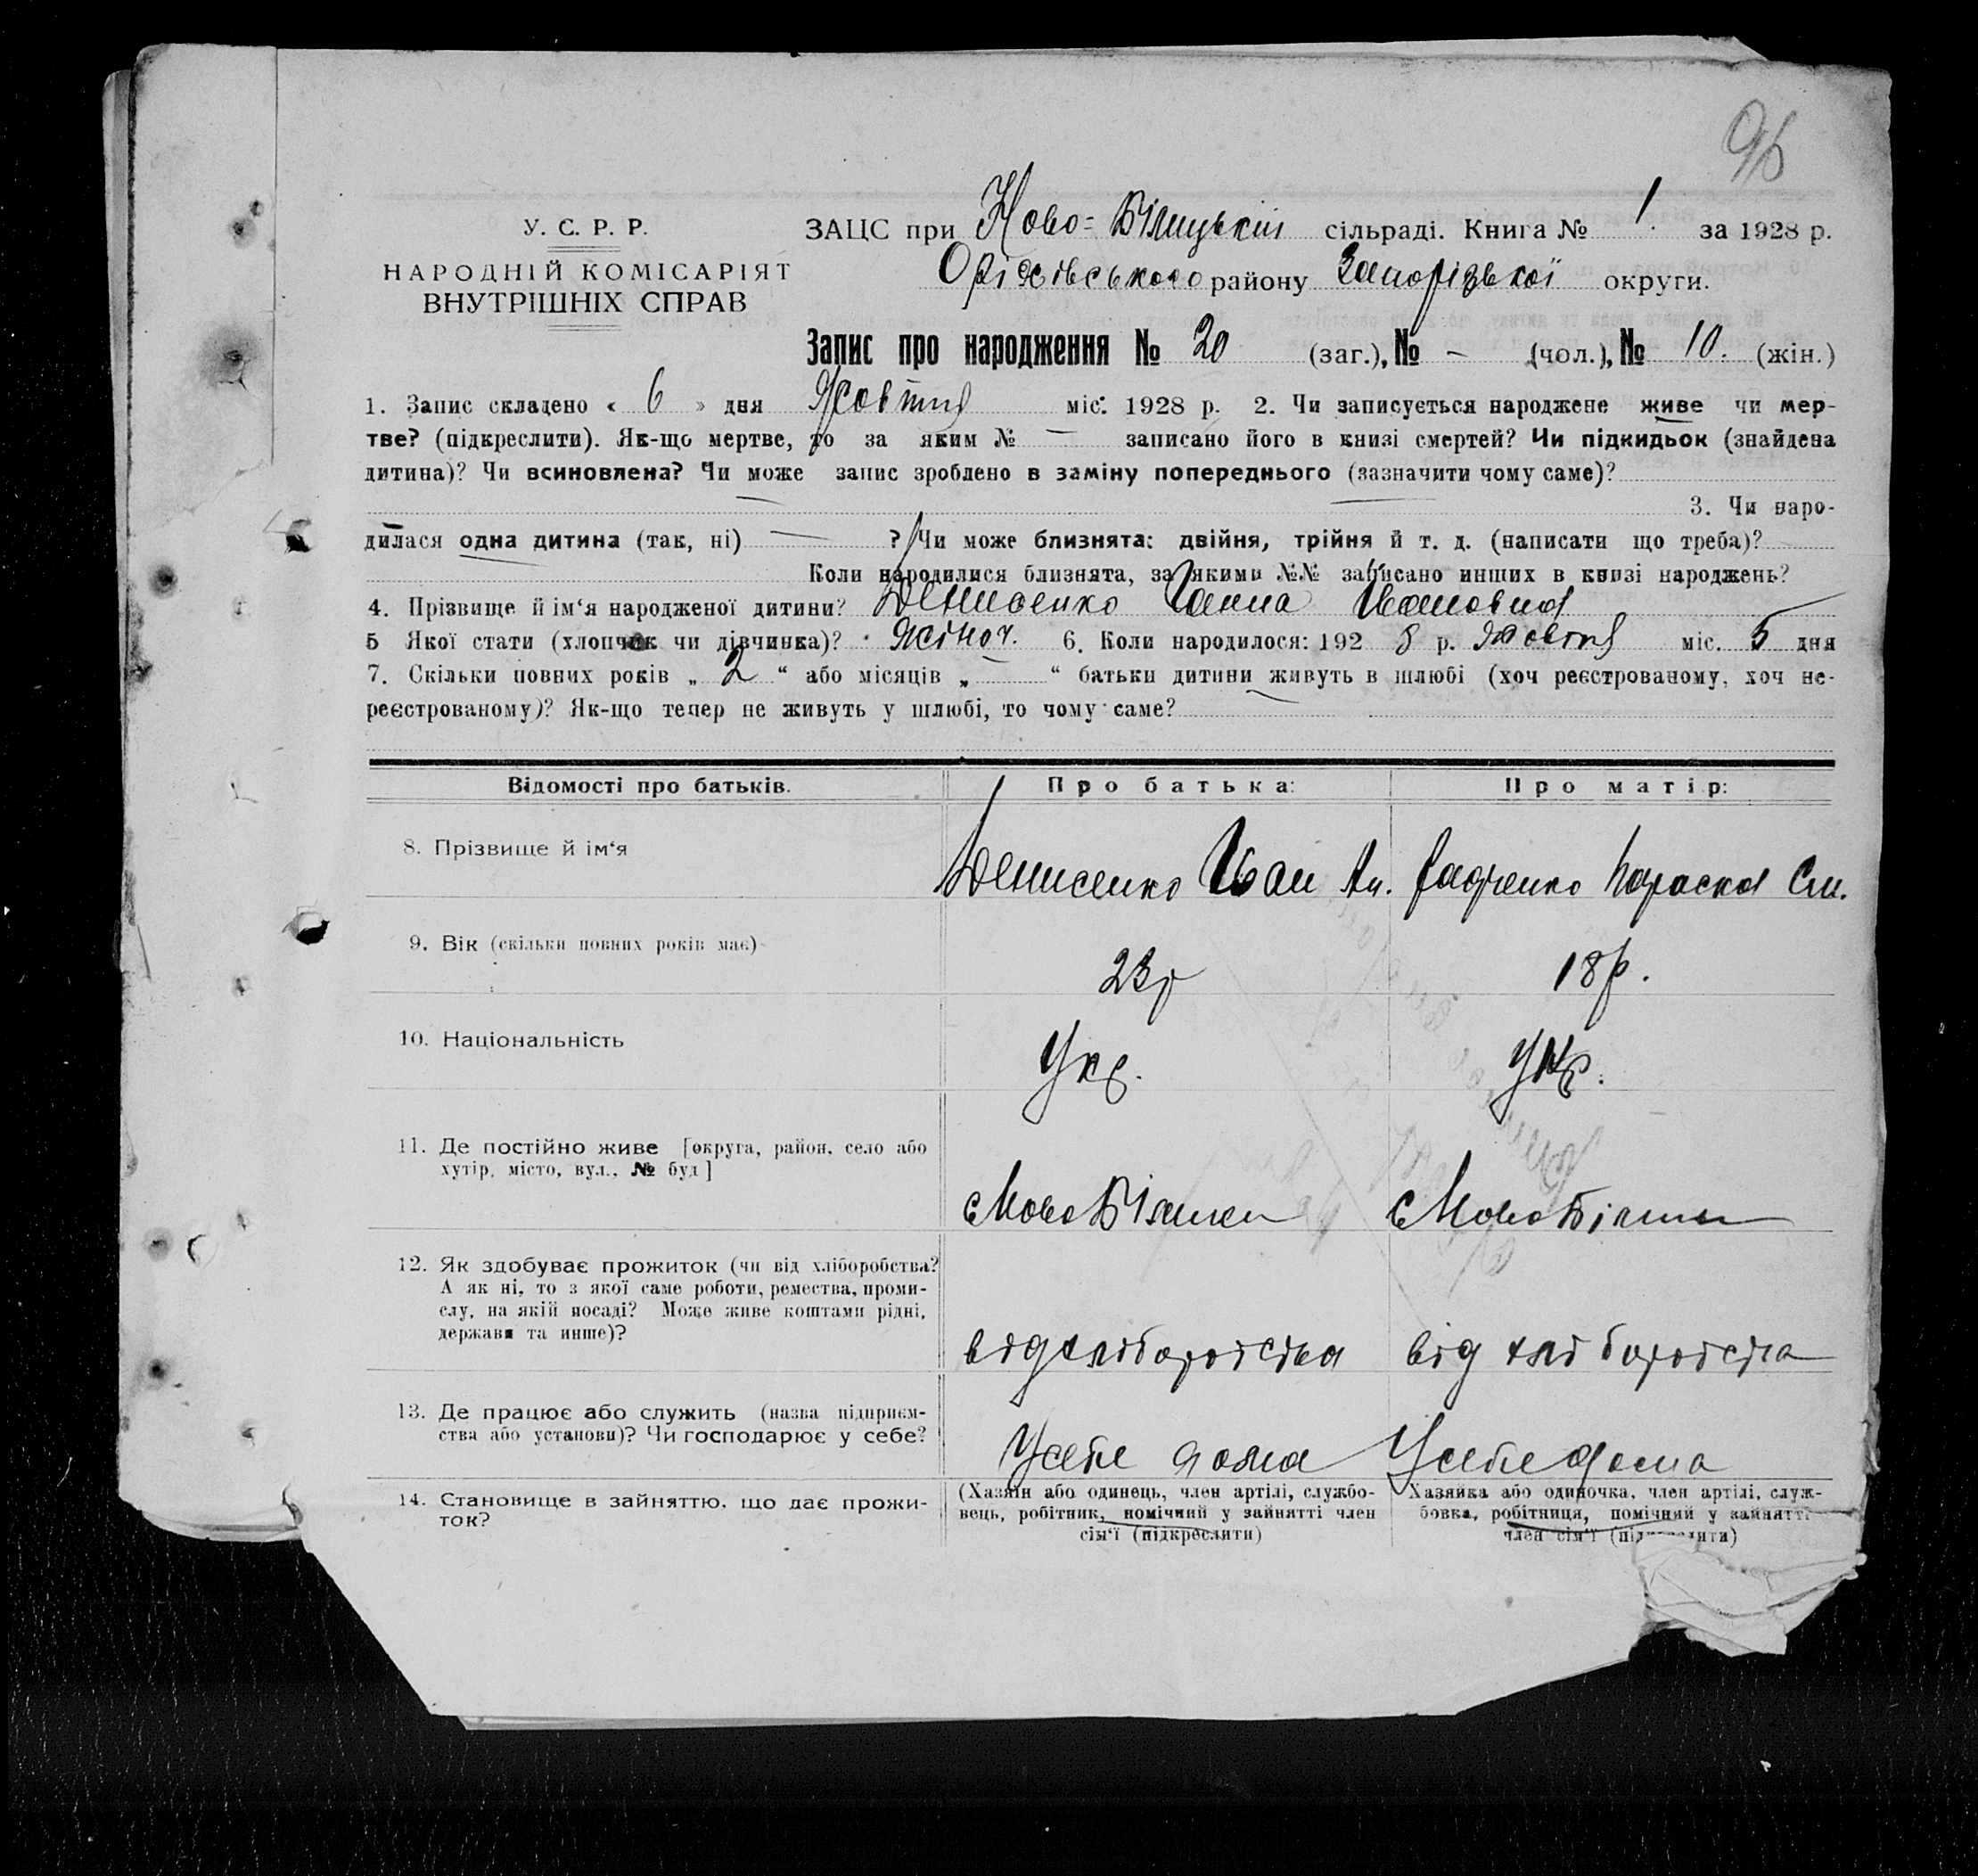 96
У. С. Р. Р.
НАРОДНІЙ КОМІСАРІЯТ
ВНУТРІШНІХ СПРАВ
ЗАЦС при Ново-Білицькій сільраді. Книга № 1. за 1928 р.
Оріхівського району Запорізької округи.
Запис про народження № 20 (заг.), № – (чол.), № 10. (жін.)
1. Запис складено « 6 » дня Жовтня міс. 1928 р. 2. Чи записується народжене живе чи мер-
тве? (підкреслити). Як-що мертве, то за яким № — записано його в книзі смертей? Чи підкидьок (знайдена
дитина)? Чи всиновлена? Чи може запис зроблено в заміну попереднього (зазначити чому саме)?
3. Чи наро-
дилася одна дитина (так, ні) — ? Чи може близнята: двійня, трійня й т. д. (написати що треба)?
Коли народилися близнята, за якими №№ записано инших в книзі народжень?
4. Прізвище й ім‘я народженої дитини? Денисенко Ганна Івановна
5 Якої стати (хлопчик чи дівчинка)? жіноч. 6. Коли народилося: 192 8 р. Жовтня міс. 5 дня
7. Скільки повних років „ 2 “ або місяців „ — “ батьки дитини живуть в шлюбі (хоч реєстрованому, хоч не-
реєстрованому)? Як-що тепер не живуть у шлюбі, то чому саме?
Відомості про батьків. Про батька: Про матір:
8. Прізвище й ім‘я Денисенко Іван Ан. Радченко Параска Сем.
9. Вік (скільки повних років має) 23р 18р.
10. Національність Укр. Укр.
11. Де постійно живе [округа, район, село або
хутір, місто, вул., № буд]
с Ново Білики с Ново Білики
12. Як здобуває прожиток (чи від хліборобства?
А як ні, то з якої саме роботи, ремества, проми-
слу, на якій посаді? Може живе коштами рідні,
держави та инше)?
від хліборобства від хліборобства
13. Де працює або служить (назва підприєм-
ства або установи)? Чи господарює у себе?
У себе дома У себе дома
14. Становище в зайняттю, що дає прожи-
ток?
(Хазяїн або одинець, член артілі, службо-
вець, робітник, помічний у зайнятті член
сім‘ї (підкреслити)
Хазяйка або одиночка, член артілі, служ-
бовка, робітниця, помічний у зайнятті
член сім‘ї